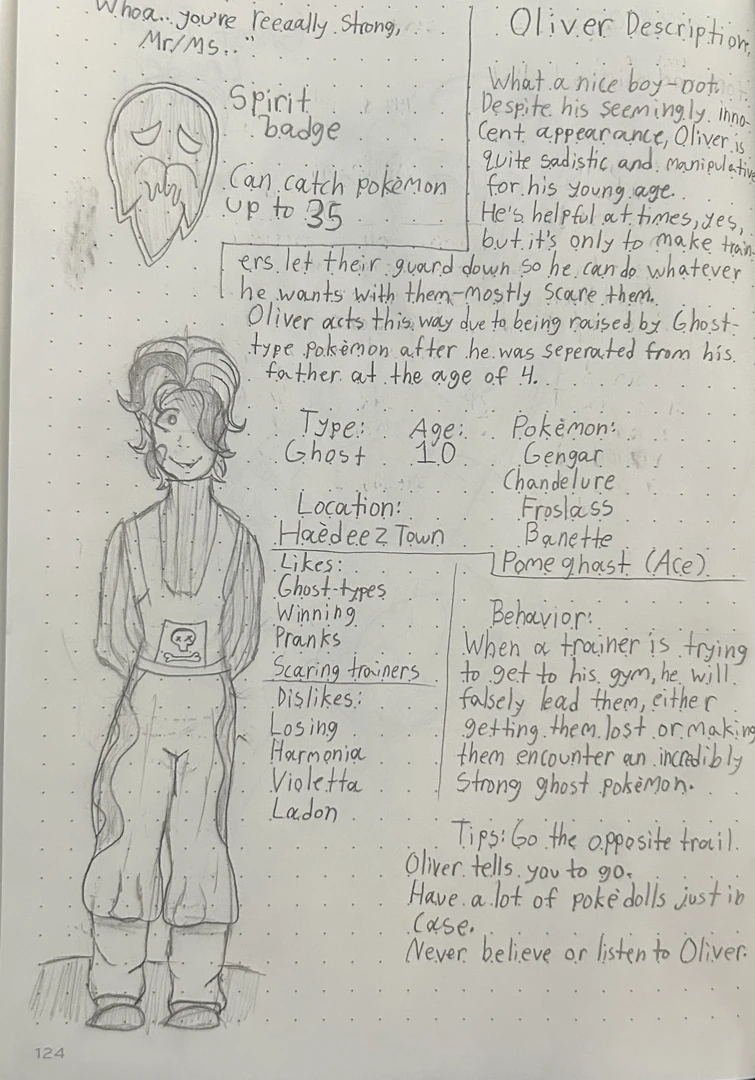 Whoa..you're reeaally strong,
Mr/Ms.."
Spirit
badge
Can catch pokèmon
up to 35
Oliver Description
What a nice boy-not.
Despite his seemingly inno-
cent appearance, Oliver is
quite sadistic and manipulative
for his young age.
He's helpful at times, yes,
but it's only to make train-
ers let their guard down so he can do whatever
he wants with them-mostly scare them.
Oliver acts this way due to being raised by Ghost-
type pokèmon after he was seperated from his
father at the age of 4.
Type:
Ghost
Age:
10
Pokèmon:
Gengar
Chandelure
Froslass
Banette
Pomeghast (Ace)
Location:
Haèdeez Town
Likes:
Ghost-types
Winning
Pranks
Scaring trainers
Dislikes:
Losing
Harmonia
Violetta
Ladon
Behavior:
When a trainer is trying
to get to his gym, he will
falsely lead them, either
getting them lost or making
them encounter an incredibly
strong ghost pokèmon.
Tips: Go the opposite trail
Oliver tells you to go.
Have a lot of pokèdolls just in
case.
Never believe or listen to Oliver.
124